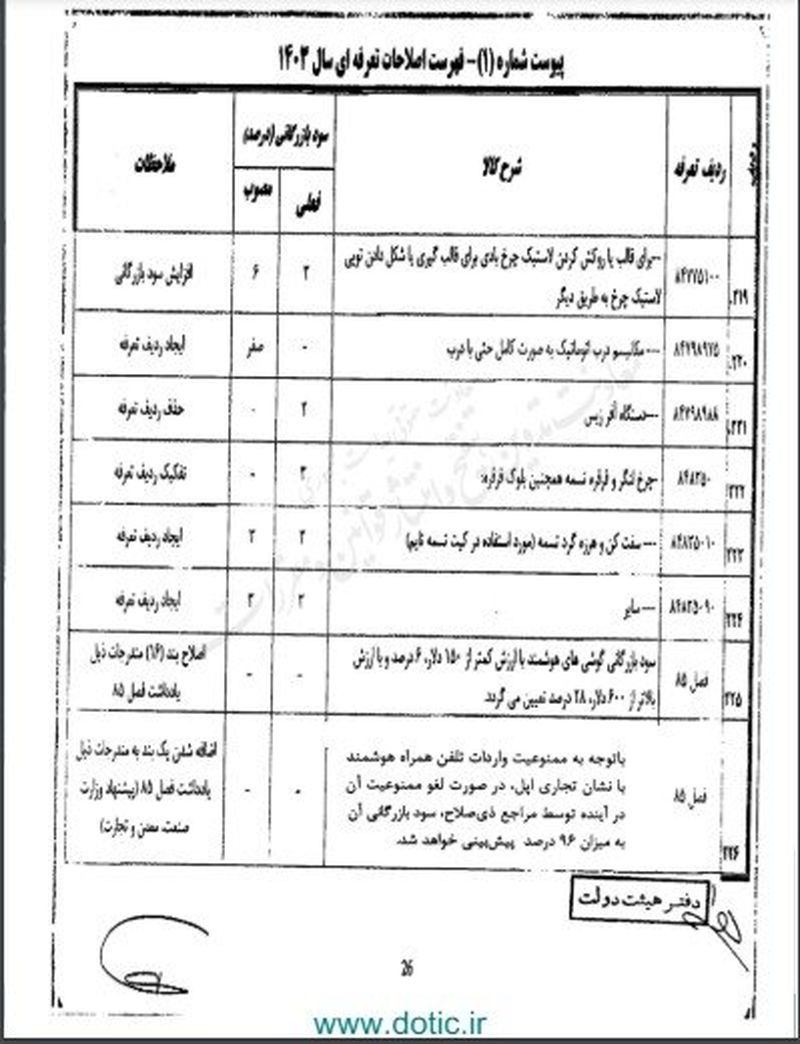 پیوست شماره (۱)- فهرست اصلاحات تعرفه ای سال ۱۴۰۳
ردیف تعرفه
شرح کالا
سود بازرگانی (درصد)
فعلی
مصوب
ملاحظات
۲۱۹.
۸۴۷۷۵۱۰۰
--برای قالب یا روکش کردن لاستیک چرخ بادی برای قالب گیری یا شکل دادن تویی
لاستیک چرخ به طریق دیگر
۲
۶
افزایش سود بازرگانی
۲۲۰.
۸۴۷۹۸۹۷۵
--- مکانیسم درب اتوماتیک به صورت کامل حتی با درب
-
صفر
ایجاد ردیف تعرفه
۲۲۱.
۸۴۷۹۸۹۸۸
---دستگاه آفر زیس
۲
-
حذف ردیف تعرفه
۲۲۲
۸۴۸۳۵۰
-چرخ لنگر و قرقره تسمه همچنین بلوک قرقره:
۲
-
تفکیک ردیف تعرفه
۲۲۳
۸۴۸۳۵۰۱۰
--- سفت کن و هرزه گرد تسمه (مورد استفاده در کیت تسمه تایم)
۲
۲
ایجاد ردیف تعرفه
۲۲۴
۸۴۸۳۵۰۹۰
--- سایر
۲
۲
ایجاد ردیف تعرفه
۲۲۵
فصل ۸۵
سود بازرگانی گوشی های هوشمند با ارزش کمتر از ۱۵۰ دلار، ۶ درصد و با ارزش
بالاتر از ۶۰۰ دلار، ۲۸ درصد تعیین می گردد.
-
-
اصلاح بند (۱۶) مندرجات ذیل
یادداشت فصل ۸۵
۲۲۶
فصل ۸۵
باتوجه به ممنوعیت واردات تلفن همراه هوشمند
با نشان تجاری اپل، در صورت لغو ممنوعیت آن
در آینده توسط مراجع ذی‌صلاح، سود بازرگانی آن
به میزان ۹۶ درصد پیش‌بینی خواهد شد.
-
-
اضافه شدن یک بند به مندرجات ذیل
یادداشت فصل ۸۵ (پیشنهاد وزارت
صنعت، معدن و تجارت)
دفتر هیئت دولت
26
www.dotic.ir